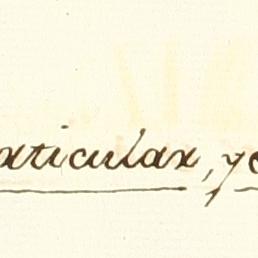 articular, y